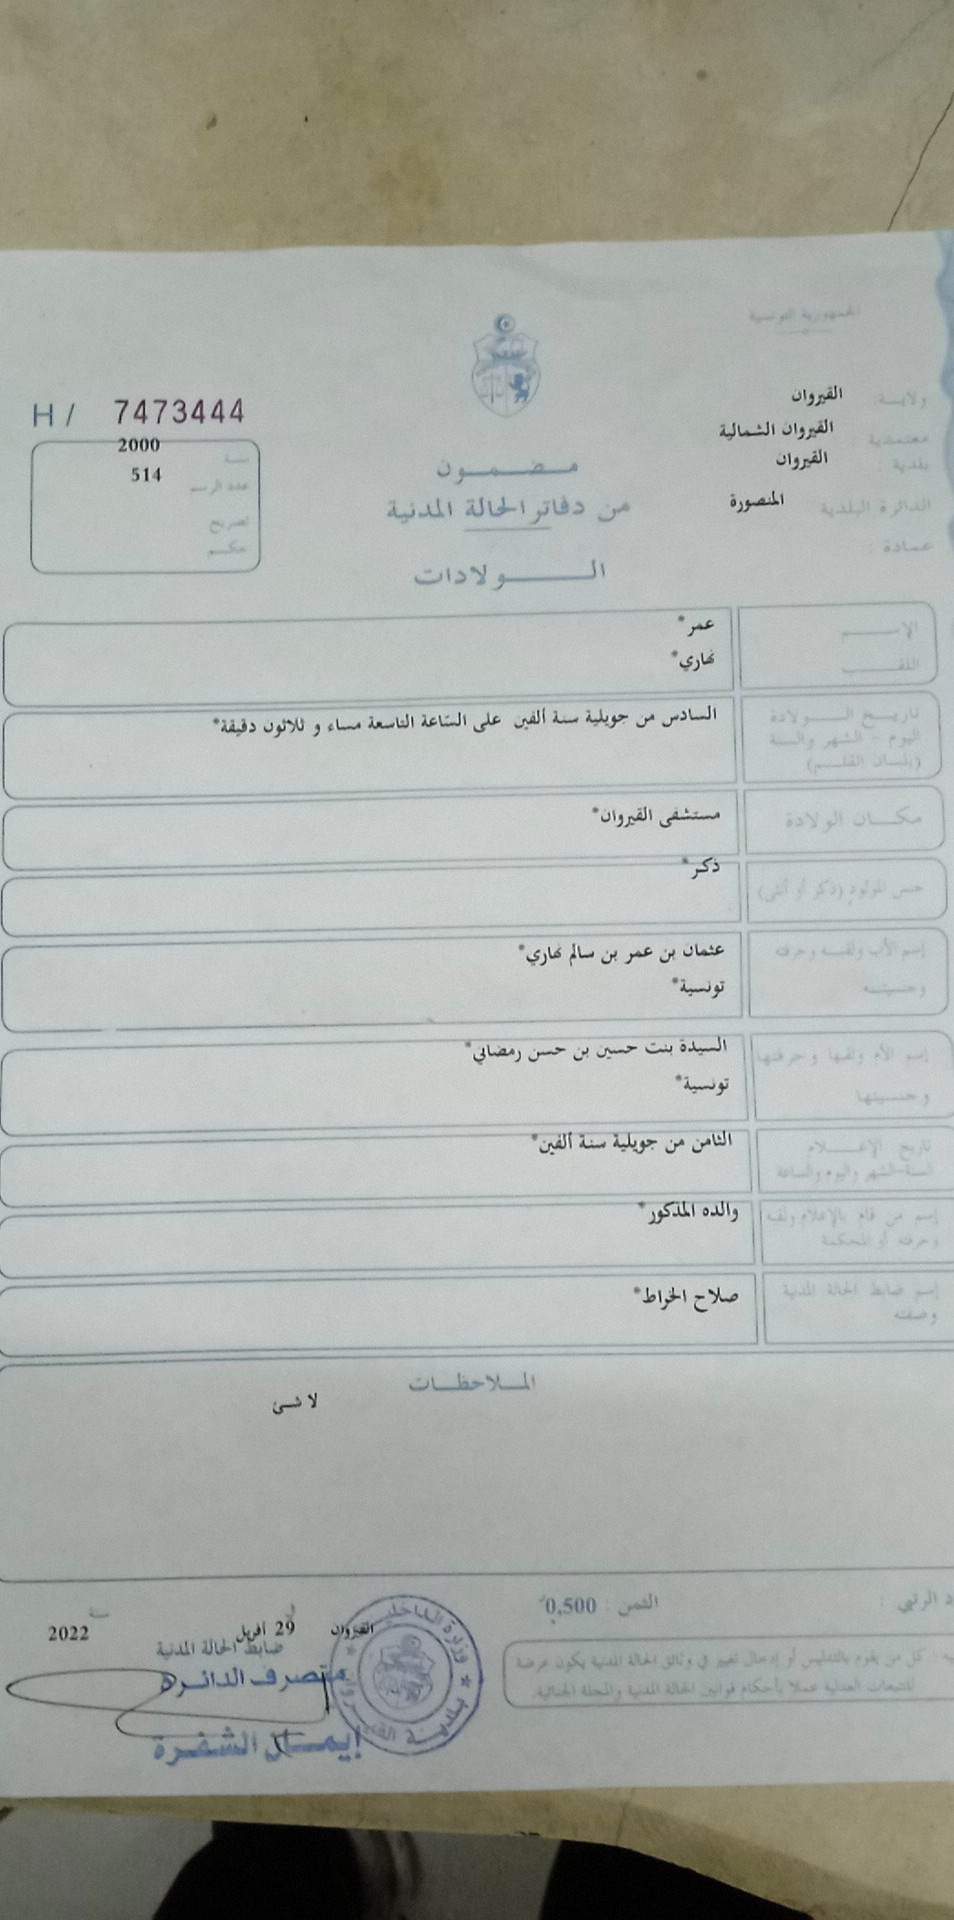 الجمهورية التونسية
ولاية: القيروان
معتمدية القيروان الشمالية
بلدية: القيروان
الدائرة البلدية المنصورة
عمادة:
H/ 7473444
سنة 2000
عدد الرسم 514
تصريح
حكم
مضمون
من دفاتر الحالة المدنية
الولادات
الإسم عمر*
اللقب نهاري*
تاريخ الولادة السادس من جويلية سنة ألفين على السّاعة التاسعة مساء و ثلاثون دقيقة*
اليوم - الشهر والسنة
(بلسان القلم)
مكان الولادة مستشفى القيروان*
جنس المولود (ذكر أو أنثى) ذكر*
إسم الأب ولقبه وحرفته عثمان بن عمر بن سالم نهاري*
وجنسيته تونسية*
إسم الأم ولقبها وحرفتها السيدة بنت حسين بن حسن رمضاني*
وجنسيتها تونسية*
تاريخ الإعلام الثامن من جويلية سنة ألفين*
السنة-الشهر واليوم والساعة
إسم من قام بالإعلام ولقبه والده المذكور*
وحرفته أو المحكمة
إسم ضابط الحالة المدنية صلاح الخراط*
وصفته
الملاحظات
لا شئ
الثمن : 0,500
القيروان في 29 أفريل سنة 2022
ضابط الحالة المدنية
متصرف الدائرة
إيمان الشفرة
وزارة الداخلية
بلدية القيروان
كل من يقوم بالتدليس أو إدخال تغيير في وثائق الحالة المدنية يكون عرضة
للتتبعات العدلية عملا بأحكام قوانين الحالة المدنية والمجلة الجنائية.